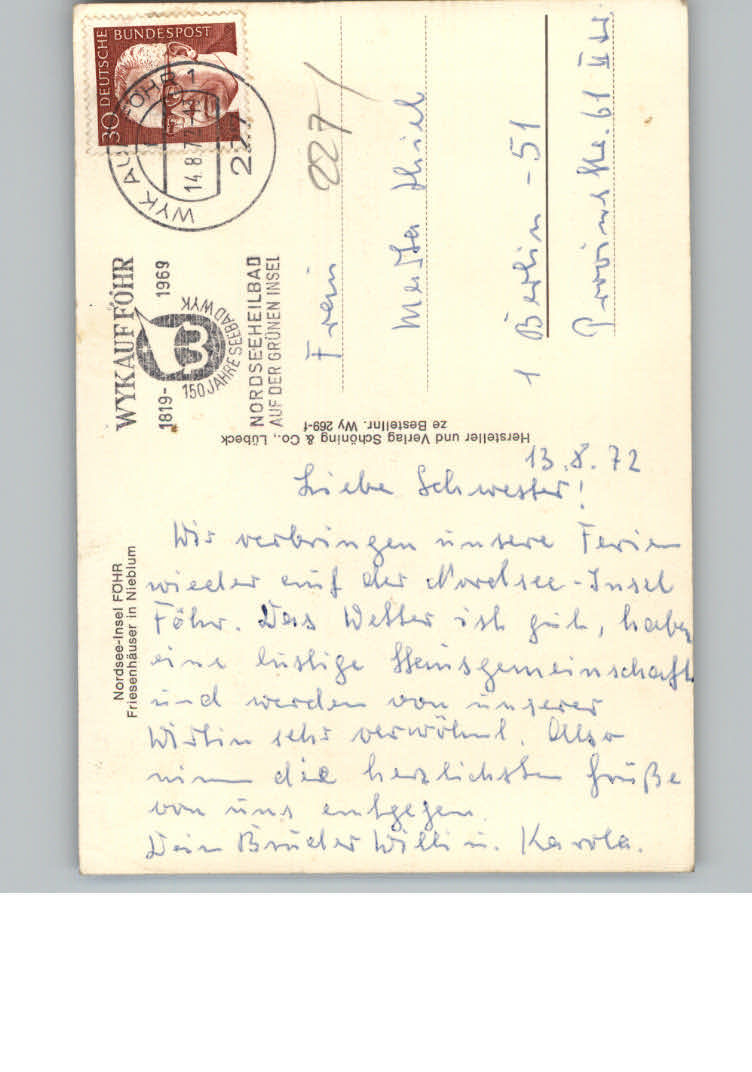 30 DEUTSCHE BUNDESPOST
WYK AUF FÖHR 1
14.8.72
227
WYK AUF FÖHR
1819-1969
150 JAHRE SEEBAD WYK
NORDSEEHEILBAD
AUF DER GRÜNEN INSEL
2271
Frau
Martha
1 Berlin-51
61 II
Hersteller und Verlag Schöning & Co., Lübeck
ze Bestellnr. Wy 269-f
Nordsee-Insel FÖHR
Friesenhäuser in Nieblum
13.8.72
Liebe Schwester!
Wir verbringen unsere Ferien
wieder auf der Nordsee-Insel
Föhr. Das Wetter ist gut, haben
eine lustige Hausgemeinschaft
und werden von unserer
Wirtin sehr verwöhnt. Also
nimm die herzlichsten Grüße
von uns entgegen.
Dein Bruder Willi u. Karola.